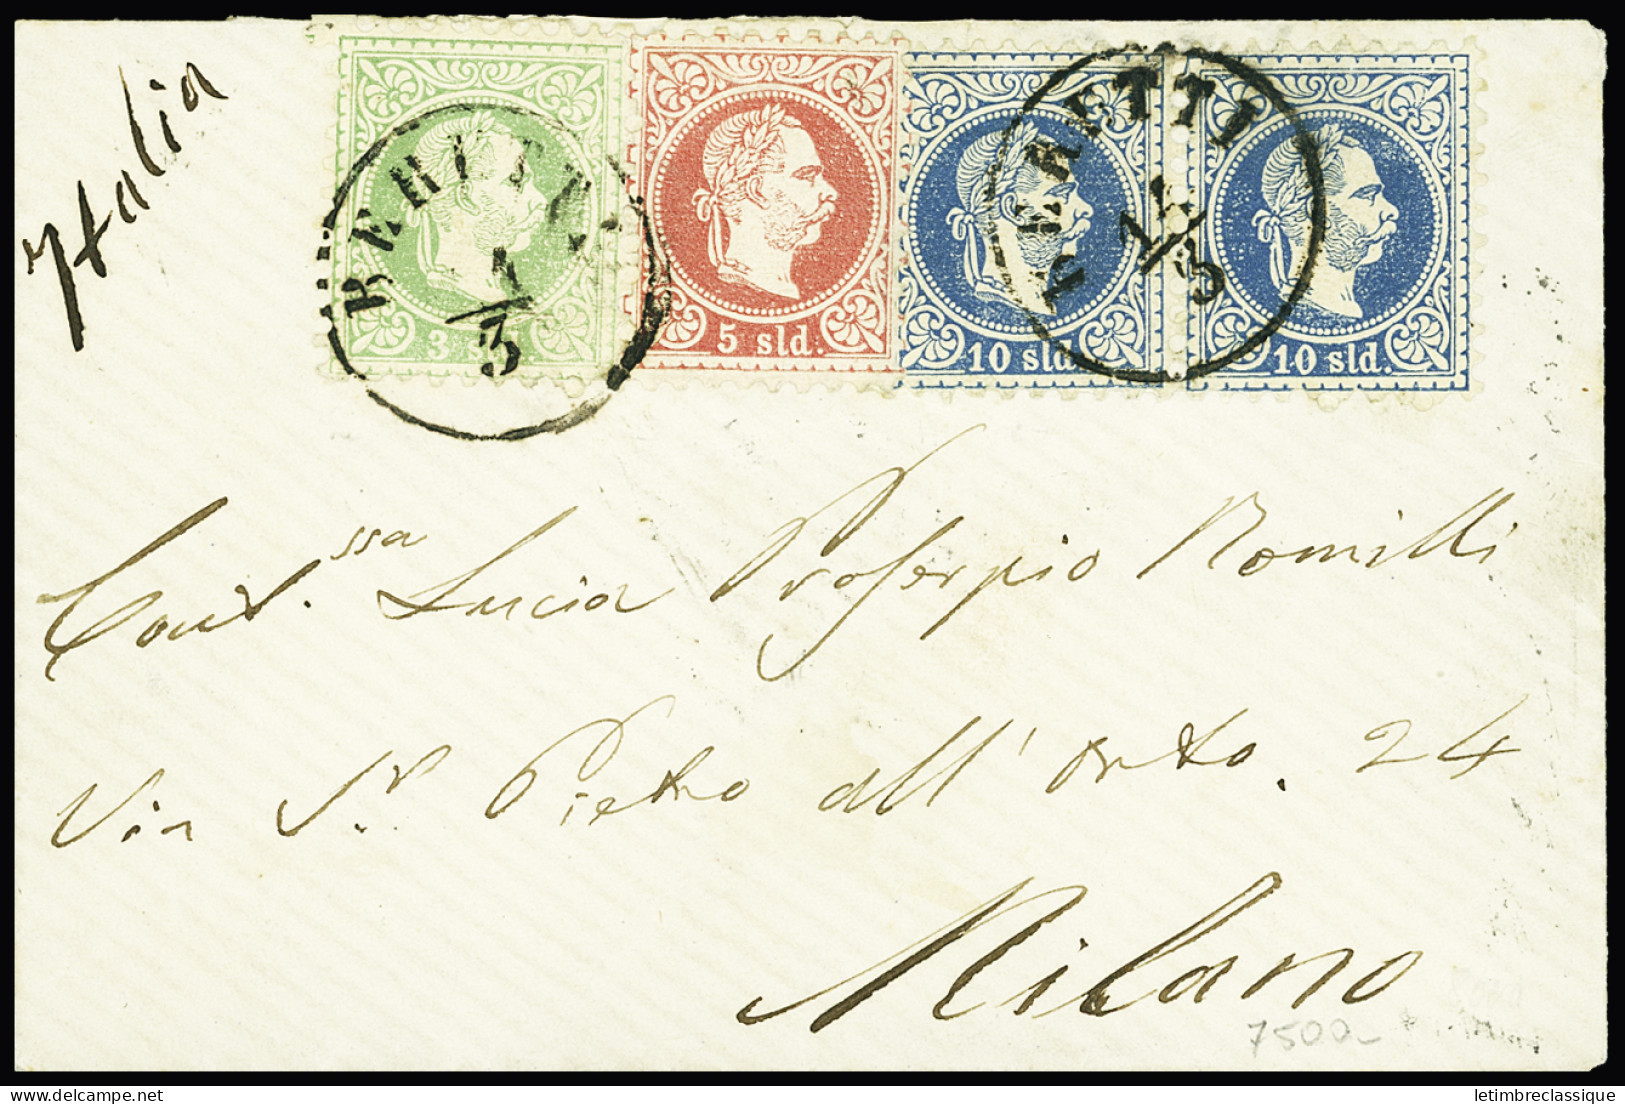 Italia
BERUTTI
1/3
3 sld.
5 sld.
10 sld.
10 sld.
BERUTTI
1/3
Cont.ssa Lucia Proserpio Romilli
Via S.r Pietro all'Orto. 24
Milano
7500-
delcampe.net
letimbreclassique